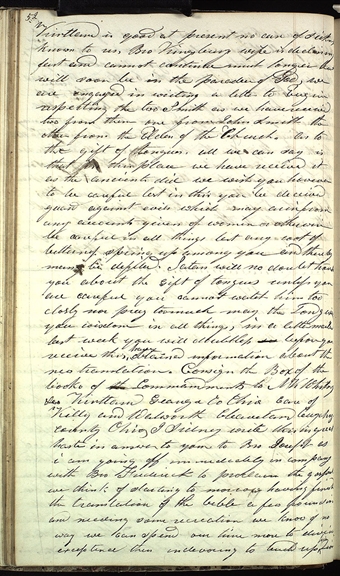 52
Kirtland is good at present no case of sickness
known to us, Bro Vinsons wife is declining
fast and cannot continue much longer but
will soon be in the paradise of God, we
are engaged in writing a letter to Eugene
respecting the two Smiths as we have received
two from them one from John Smith the
other from the Elder of the Church. as to
the gift of tongues, all we can say is
that in this place we have received it
as the ancients did we wish you however
to be careful lest in this you be deceived
guard against evils which may arise from
any accounts given of women or otherwise
be careful in all things lest any root of
bitterness spring up among you and thereby
many be defiled. Satan will no doubt trouble
you about the gift of tongues unless you
are careful you cannot watch him too
closely nor pray too much may the Lord give
you wisdom in all things, in a letter mailed
last week you will doubtless before you
receive this, have obtained information about the
new translation. Consign the Box of the
books of Commandments to N. K. Whitney
Kirtland Geauga Co Ohio Care of
Kelly and Walworth Cleaveland Cuyahoga
county Ohio, I Sidney write this in great
haste in answer to yours to Bro Joseph as
i am going off immediately in company
with Bro Frederick to proclaim the gospel
we think of starting to morrow having finished
the translation of the bible a few hours since
and needing some recreation we know of no
way we can spend our time more to divine
acceptance than endeavoring to build up his